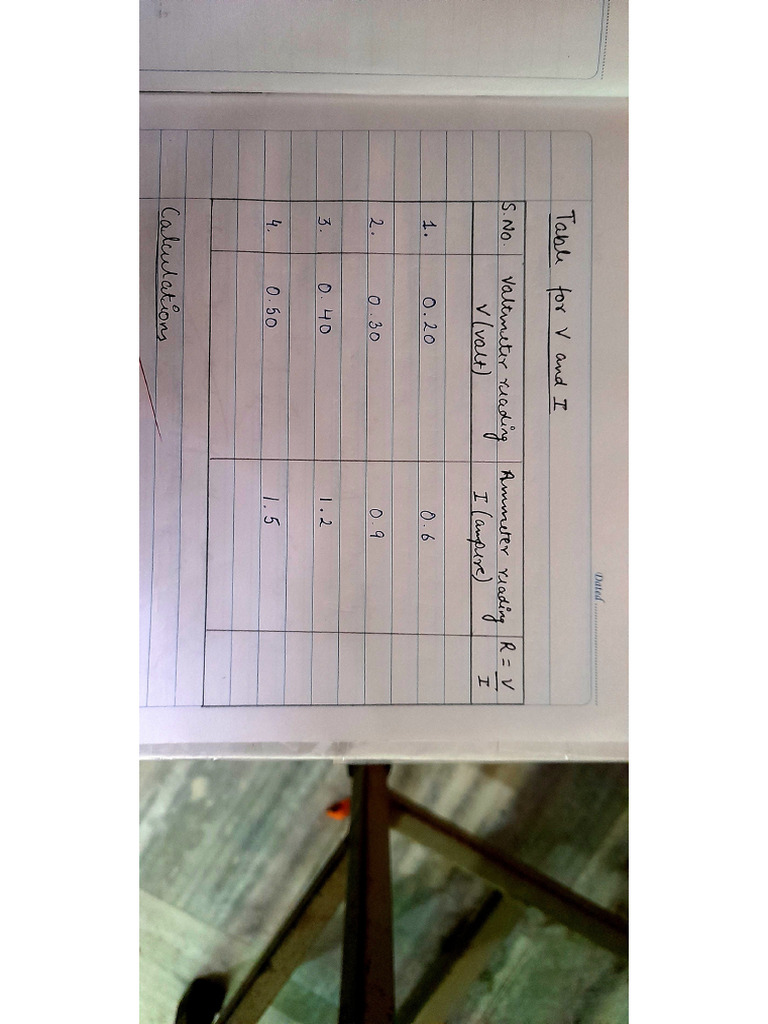 Dated
Table for V and I
S. No. Voltmeter reading V (volt) Ammeter reading I (ampire) R = V/I
1. 0.20 0.6
2. 0.30 0.9
3. 0.40 1.2
4. 0.50 1.5
Calculations